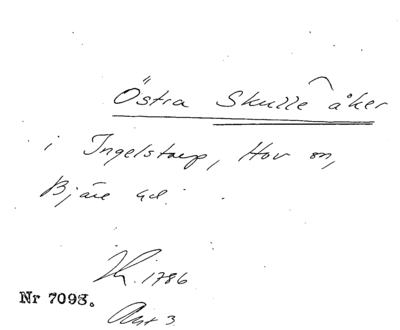 Östra Skulle^åker
i Ingelstorp, Hov sn,
Bjäre hd.
1786
Nr 7098.
Akt 3.